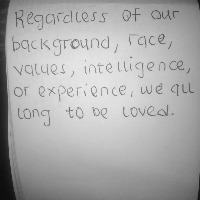 Regardless of our
background, race,
values, intelligence,
or experience, we all
long to be loved.